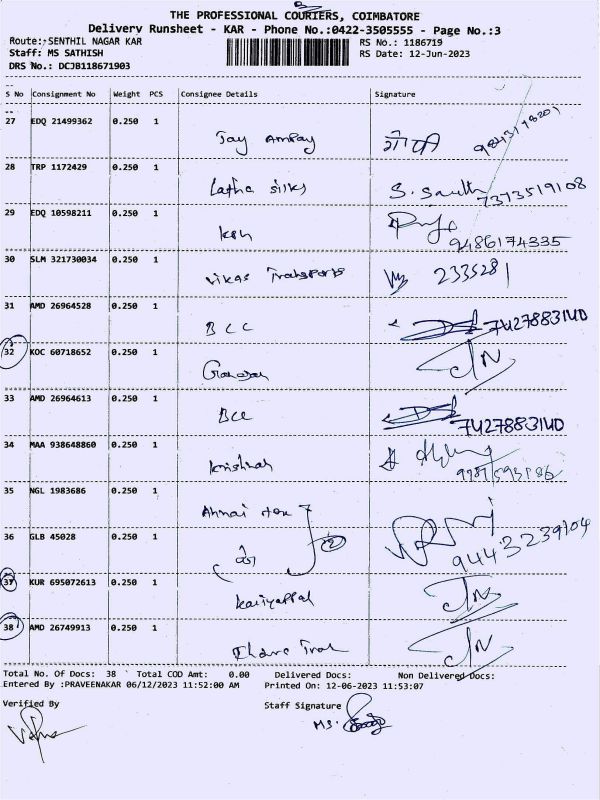 THE PROFESSIONAL COURIERS, COIMBATORE
Delivery Runsheet - KAR - Phone No.:0422-3505555 - Page No.:3
Route:-SENTHIL NAGAR KAR RS No.: 1186719
Staff: MS SATHISH RS Date: 12-Jun-2023
DRS No.: DCJB118671903
S No Consignment No Weight PCS Consignee Details Signature
27 EDQ 21499362 0.250 1
Jay 9843118201
28 TRP 1172429 0.250 1
Latha silks 7373519108
29 EDQ 10598211 0.250 1
9486174335
30 SLM 321730034 0.250 1
Vikas Transports 2335281
31 AMD 26964528 0.250 1
BCC 7427883140
32 KOC 60718652 0.250 1
JN
33 AMD 26964613 0.250 1
BCC 7427883140
34 MAA 938648860 0.250 1
Krishnah
35 NGL 1983686 0.250 1
36 GLB 45028 0.250 1
2 9443239104
37 KUR 695072613 0.250 1
Kariyappal JN
38 AMD 26749913 0.250 1
JN
Total No. Of Docs: 38 Total COD Amt: 0.00 Delivered Docs: Non Delivered Docs:
Entered By :PRAVEENAKAR 06/12/2023 11:52:00 AM Printed On: 12-06-2023 11:53:07
Verified By Staff Signature
MS.